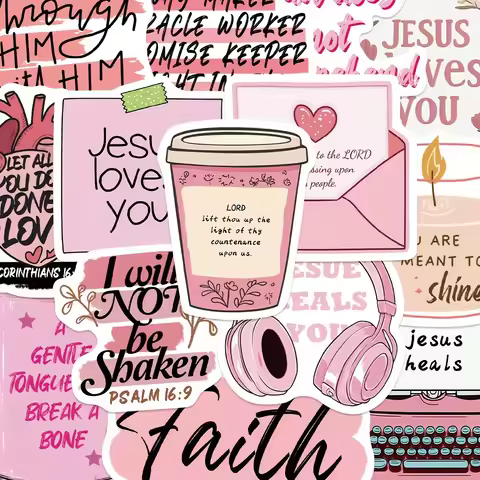 through
HIM
HIM
WAY MAKER
MIRACLE WORKER
PROMISE KEEPER
LIGHT IN
not
JESUS
LOVES
YOU
LET ALL
YOU DO
DONE
LOVE
CORINTHIANS 16:
Jesus
loves
you
to the LORD
blessing upon
people.
LORD
lift thou up the
light of thy
countenance
upon us.
YOU ARE
MEANT TO
shine
I will
NOT
be
Shaken
PSALM 16:9
JESUS
HEALS
YOU
jesus
heals
A
GENTLE
TONGUE
BREAK A
BONE
Faith